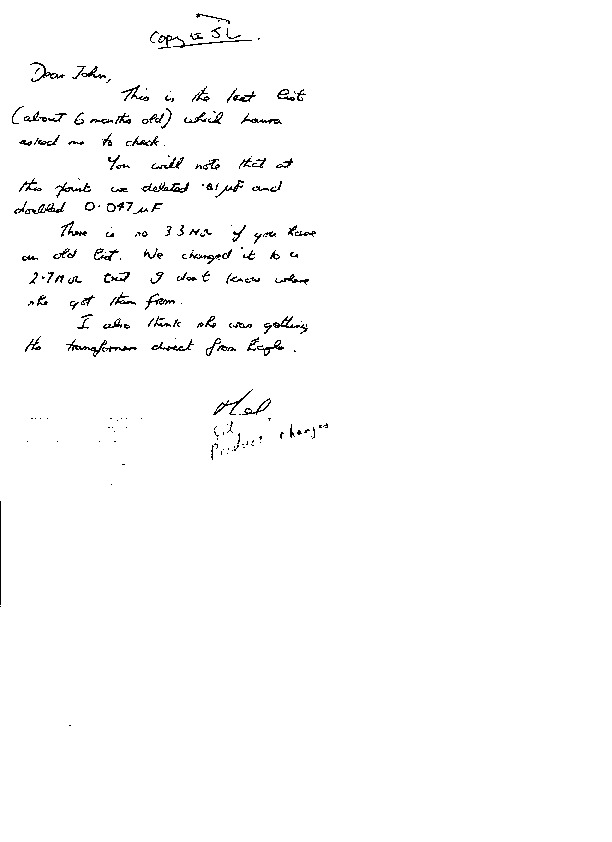 Copy to JL.
Dear John,
This is the last list
(about 6 months old) which Laura
asked me to check.
You will note that at
this point we deleted .01µF and
doubled 0.047µF
There is no 3.3MΩ if you have
an old list. We changed it to a
2.7MΩ but I don't know where
she got them from.
I also think she was getting
the transformer direct from Eagle.
Product changes